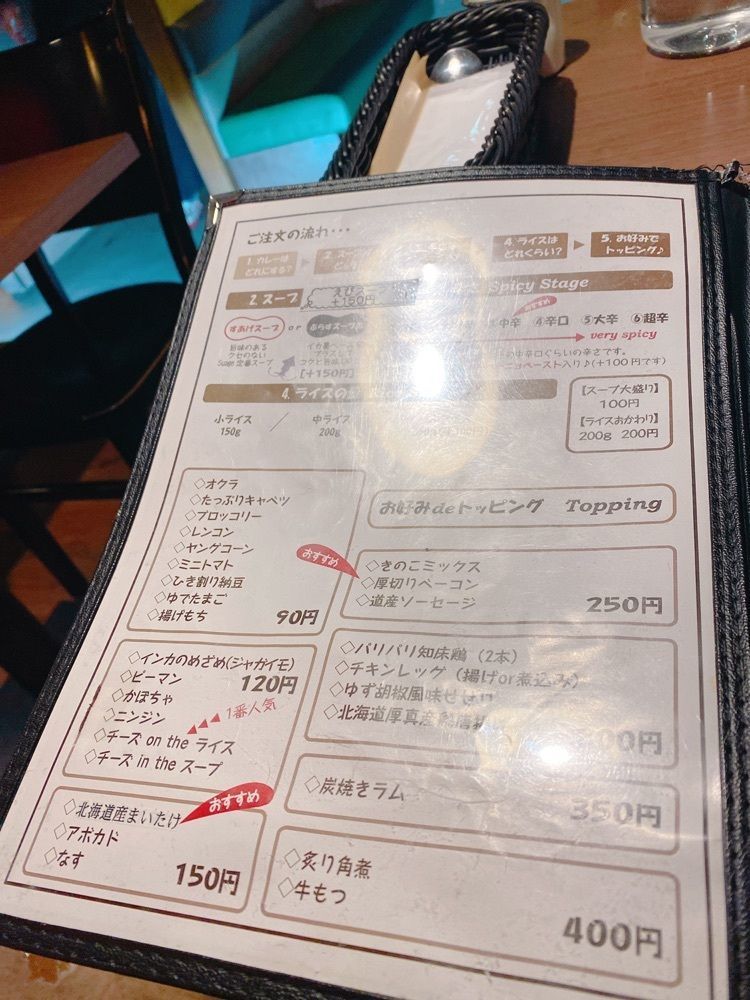 ご注文の流れ･･･
1. カレーは
どれにする?
2. スープ
4. ライスは
どれくらい?
5. お好みで
トッピング♪
2. スープ
えびスープ
+150円
Spicy Stage
すあげスープ or
旨味のある
クセのない
定番スープ
[+150円]
おすすめ
中辛 ④辛口 ⑤大辛 ⑥超辛
very spicy
の中辛口ぐらいの辛さです。
ペースト入り♪(+100円です)
4. ライスの
小ライス
150g
中ライス
200g
【スープ大盛り】
100円
【ライスおかわり】
200g 200円
◇オクラ
◇たっぷりキャベツ
◇ブロッコリー
◇レンコン
◇ヤングコーン
◇ミニトマト
◇ひき割り納豆
◇ゆでたまご
◇揚げもち
90円
お好みdeトッピング Topping
おすすめ
◇きのこミックス
◇厚切りベーコン
◇道産ソーセージ
250円
◇インカのめざめ(ジャガイモ)
◇ピーマン
◇かぼちゃ
◇ニンジン
◇チーズ on the ライス
◇チーズ in the スープ
120円
1番人気
◇パリパリ知床鶏 (2本)
◇チキンレッグ (揚げor煮込み)
◇ゆず胡椒風味せせり
◇北海道厚真産
00円
◇炭焼きラム
350円
おすすめ
◇北海道産まいたけ
◇アボカド
◇なす
150円
◇炙り角煮
◇牛もつ
400円